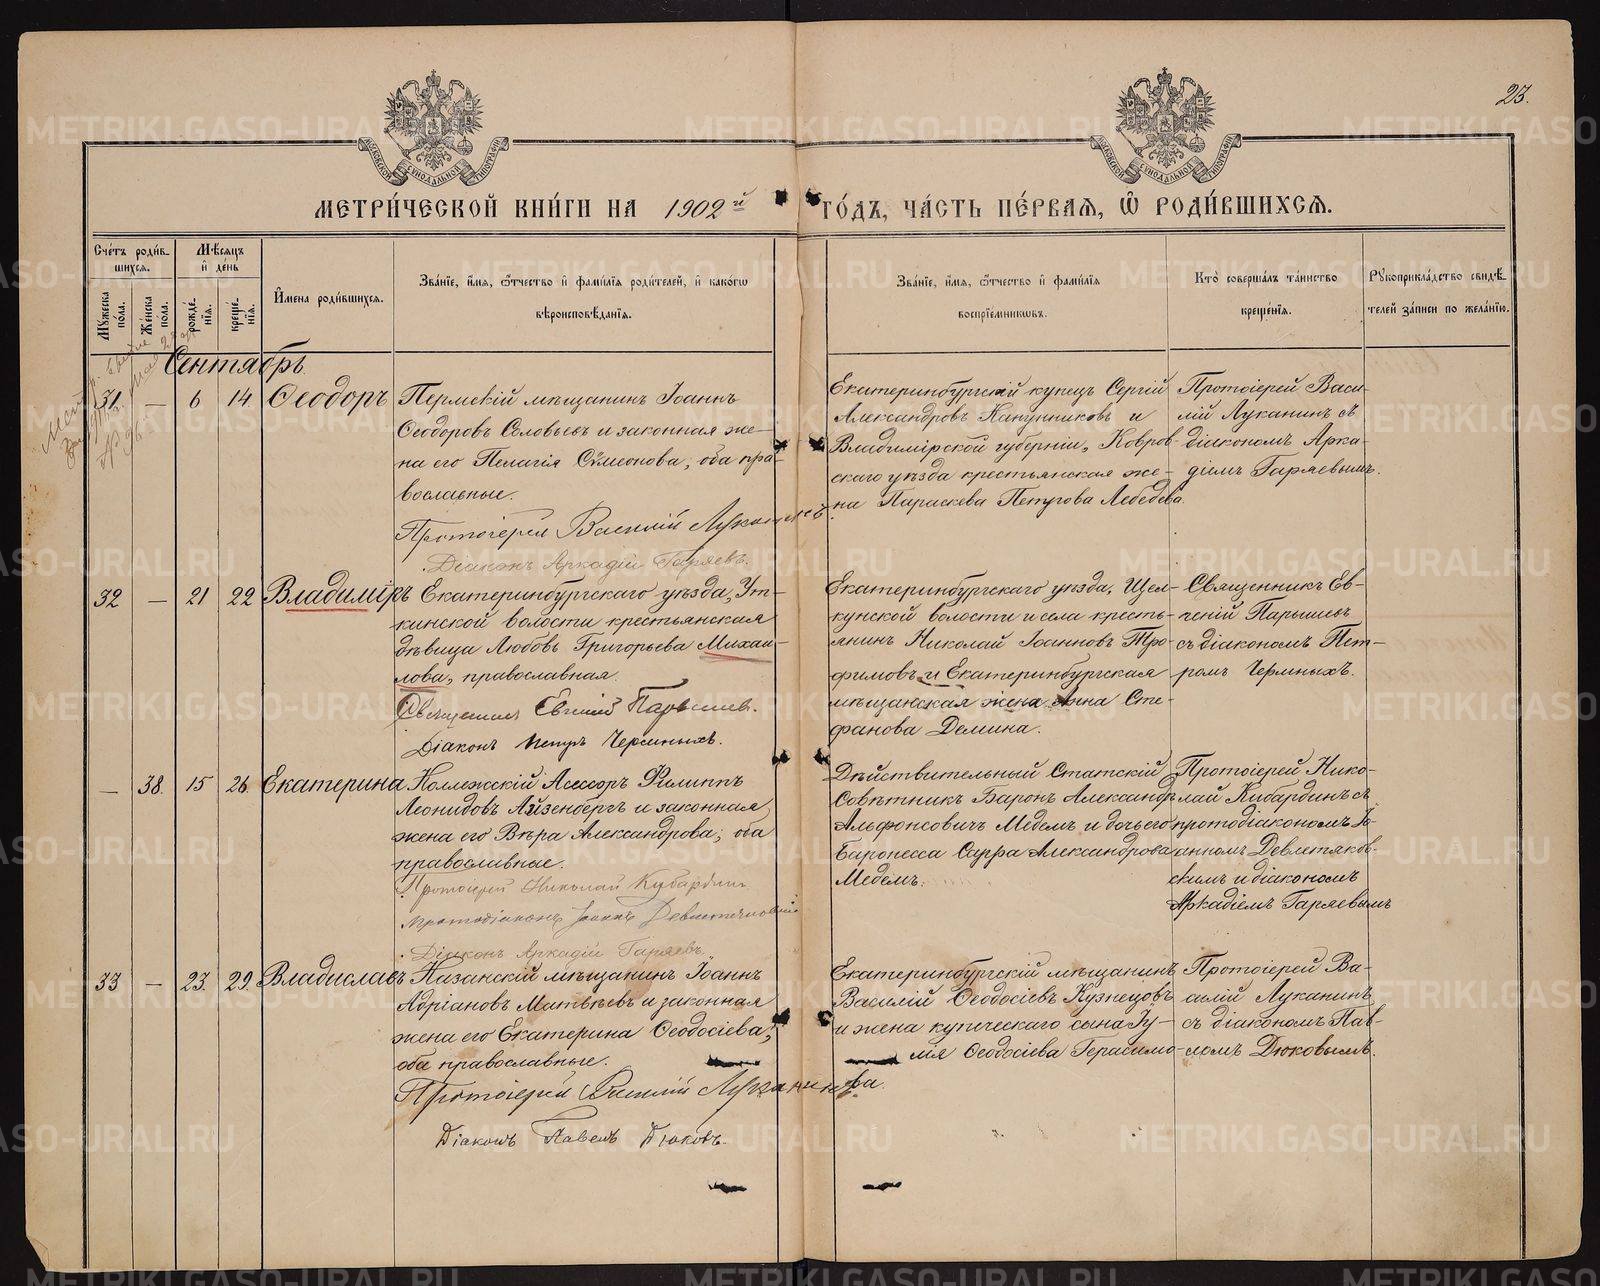 23.
МОСКОВСКОЙ СѴНОДАЛЬНОЙ ТИПОГРАФІИ
МОСКОВСКОЙ СѴНОДАЛЬНОЙ ТИПОГРАФІИ
МЕТРИ́ЧЕСКОЙ КНИ́ГИ НА 1902й ГО́ДЪ, ЧА́СТЬ ПЕ́РВАѦ, Ѡ҆ РОДИ́ВШИХСѦ.
Сче́тъ роди́в-
шихсѧ.
Мꙋ́жеска по́ла.
Же́нска по́ла.
Мѣ́сѧцъ
и҆ де́нь
рожде́-
нїѧ.
креще́-
нїѧ.
И҆мена роди́вшихсѧ.
Зва́нїе, и҆́мѧ, ѻ҆́тчество и҆ фами́лїѧ роди́телей, и҆ како́гѡ
вѣроисповѣ́данїѧ.
Зва́нїе, и҆́мѧ, ѻ҆́тчество и҆ фами́лїѧ
воспрїе́мниковъ.
Кто̀ соверша́лъ та́инство
креще́нїѧ.
Рꙋкоприкла́дство свидѣ́-
телей за́писи по жела́нїю.
Сентябрь
31. — 6 14. Ѳеодоръ
Пермскій мѣщанинъ Іоаннъ
Ѳеодоровъ Соловьевъ и законная же-
на его Пелагія Сѵмеонова, оба пра-
вославные.
Протоіерей Василій Луканинъ
Діаконъ Аркадій Гаряевъ.
Екатеринбургскій купецъ Сергій
Александровъ Капунниковъ и
Владимірской губерніи, Ковров-
скаго уѣзда крестьянская же-
на Параскева Петрова Лебедева.
Протоіерей Васи-
лій Луканинъ съ
діакономъ Арка-
діемъ Гаряевымъ.
32 — 21 22 Владиміръ
Екатеринбургскаго уѣзда, Ут-
кинской волости крестьянская
дѣвица Любовь Григорьева Михаи-
лова, православная.
Священникъ Евгеній Парышев.
Діаконъ Петръ Черемныхъ.
Екатеринбургскаго уѣзда, Щел-
кунской волости и села кресть-
янинъ Николай Іоанновъ Тро-
фимовъ и Екатеринбургская
мѣщанская жена Анна Сте-
фанова Демина.
Священникъ Ев-
геній Парышевъ
съ діакономъ Пет-
ромъ Чермныхъ.
— 38. 15 26. Екатерина
Коллежскій Ассесоръ Филиппъ
Леонидовъ Айзенбергъ и законная
жена его Вѣра Александрова; оба
православные.
Протоіерей Николай Кибардин
протодіаконъ Іоаннъ Девлетяковскій
Діакон Аркадій Гаряевъ.
Дѣйствительный Статскій
Совѣтникъ Баронъ Александръ
Альфонсовичъ Медемъ и дочь его
Баронесса Сарра Александрова
Медемъ.
Протоіерей Нико-
лай Кибардинъ съ
протодіакономъ Іо-
анномъ Девлетяков-
скимъ и діакономъ
Аркадіемъ Гаряевымъ
33 — 23. 29. Владиславъ
Казанскій мѣщанинъ Іоаннъ
Адріановъ Матвѣевъ и законная
жена его Екатерина Ѳеодосіева;
оба православные.
Протоіерей Василій Луканинъ
Діаконъ Павелъ Дюковъ.
Екатеринбургскій мѣщанинъ
Василій Ѳеодосіевъ Кузнецовъ
и жена купеческаго сына Іу-
лія Ѳеодосіева Герасимо-
ва.
Протоіерей Ва-
силій Луканинъ
съ діакономъ Пав-
ломъ Дюковымъ.
METRIKI.GASO-URAL.RU